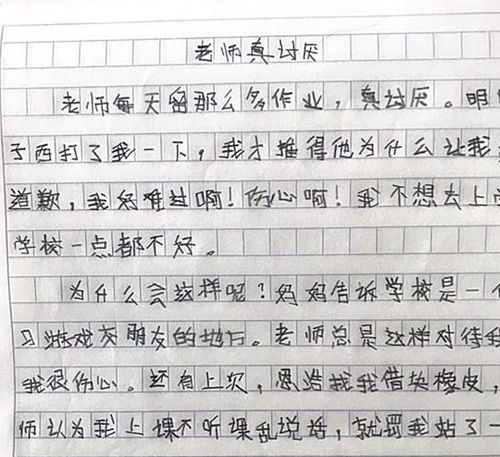 老师真讨厌
老师每天留那么多作业，真讨厌。明
子西打了我一下，我才推得他为什么让我
道歉，我好难过啊！伤心啊！我不想去上
学校一点都不好。
为什么会这样呢？妈妈告诉学校是一个
习游戏交朋友的地方。老师总是这样对待我
我很伤心。还有上次，恩浩找我借块橡皮，
师认为我上课不听课乱说话，就罚我站了一